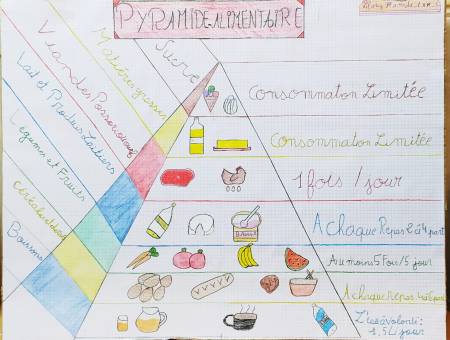 PYRAMIDE ALIMENTAIRE
Sucre
Matières grasses
Viandes Poissons Oeufs
Lait et Produits Laitiers
Légumes et Fruits
Boissons
Consommation Limitée
Consommation Limitée
1 fois / jour
A chaque Repas 2 à 4 part
Au moins 5 Fois/5 jour
A chaque repas
L'eau à volonté:
1,5 L/jour